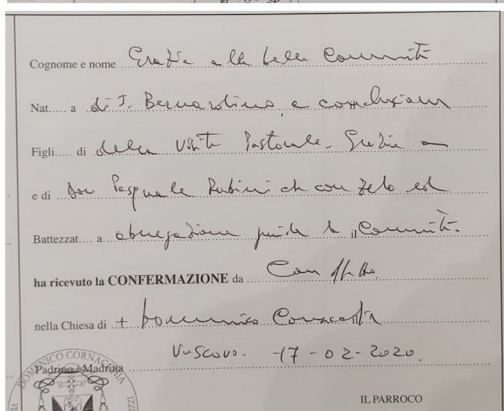 Cognome e nome Grazie alla bella Comunità
Nat..... a di S. Bernardino, a conclusione
Figli..... di della Visita Pastorale. Grazie a
e di don Pasquale Rubini che con zelo ed
Battezzat.... a abnegazione guida la il Comunità.
ha ricevuto la CONFERMAZIONE da Con affetto
nella Chiesa di + Domenico Cornacchia
Padrino/Madrina Vescovo. -17-02-2020.
DOMENICO CORNACCHIA
IL PARROCO